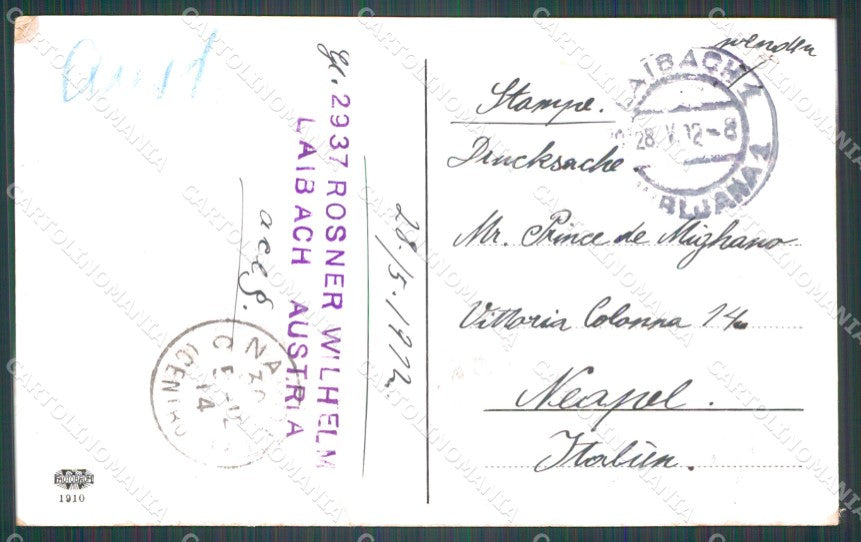 wenden
LAIBACH 1
28 V 12-8
LJUBLJANA 1
Stampe.
Drucksache.
Mr. Prince de Mighano
Vittoria Colonna 14
Neapel.
Italien.
28/5.1912
2937 ROSNER WILHELM
LAIBACH AUSTRIA
1910
CARTOLINOMANIA